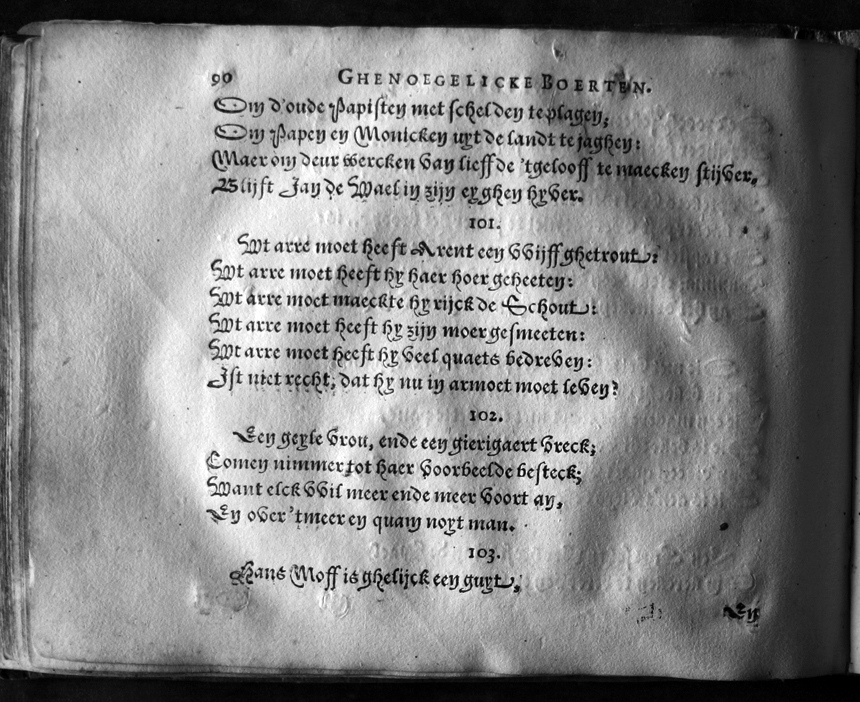 90 GHENOEGELICKE BOERTEN.
Om d'oude Papisten met schelden te plagen,
Om Papen en Monicken uyt de landt te jaghen:
Maer om deur wercken van lieff de 'tgelooff te maecken stijver,
Blijft Jan de Wael in zijn eyghen hyver.
101.
Wt arre moet heeft Arent een wijff ghetrout:
Wt arre moet heeft hy haer hoer geheeten:
Wt arre moet maeckte hy rijck de Schout:
Wt arre moet heeft hy zijn moer gesmeeten:
Wt arre moet heeft hy veel quaets bedreven:
Ist niet recht, dat hy nu in armoet moet leven?
102.
Een geyle vrou, ende een gierigaert vreck;
Comen nimmer tot haer voorbeelde besteck;
Want elck wil meer ende meer voort an,
En over 'tmeer en quam noyt man.
103.
Hans Moff is ghelijck een guyt,
En